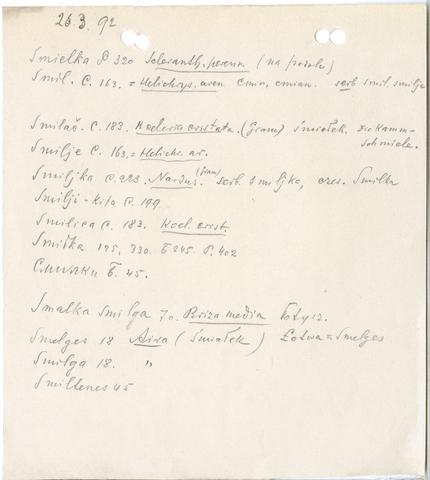 26.3.92
Smielka P. 320 Scleranth. perenn (na polu)
Smil. C. 163. = Helichrys. aren cmin, cmian. serb smil. smilje
Smilač. C. 183. Koeleria cristata. (Gram) śmiałek, Die Kamm-
Schmiele.
Smilje C. 163. = Helichr. ar.
Smiljka. C. 223. Nardus. (Gram) serb. smiljka, czes. Smilka
Smilji-kita C. 199.
Smilica C. 183. Koel. crist.
Smitka 195, 330. Б 245. P. 402
Б. 45.
Smalka Smilga 70. Briza media Łotysz.
Smelges 18 Aira (Śmiałek) Łotwa = Smelges
Smilga 18. "
Smiltenes 45